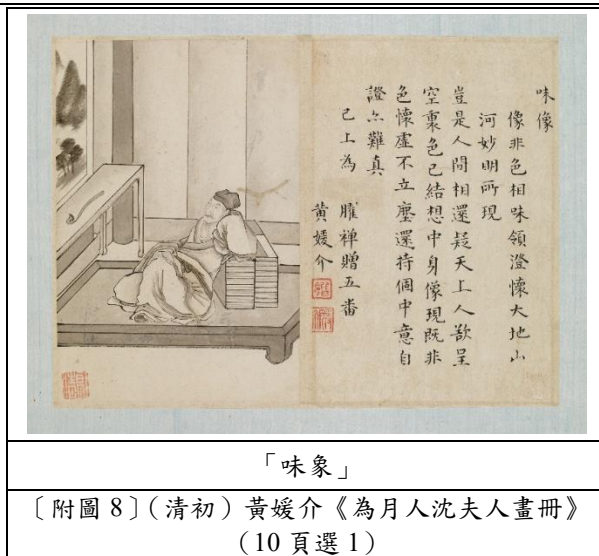 味像
像非色相味領澄懷大地山
河妙明所現
豈是人間相還疑天上人欲呈
空裏色已結想中身像現既非
色懷虛不立塵還持個中意自
證亦難真
已上為 臞禪贈五番
黃媛介
「味象」
〔附圖 8〕(清初) 黃媛介《為月人沈夫人畫冊》
(10 頁選 1)